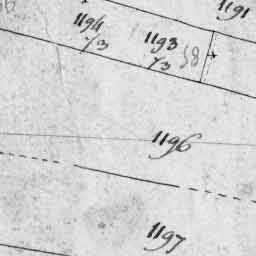 1191
1194
73
1193
73
38
1196
1197